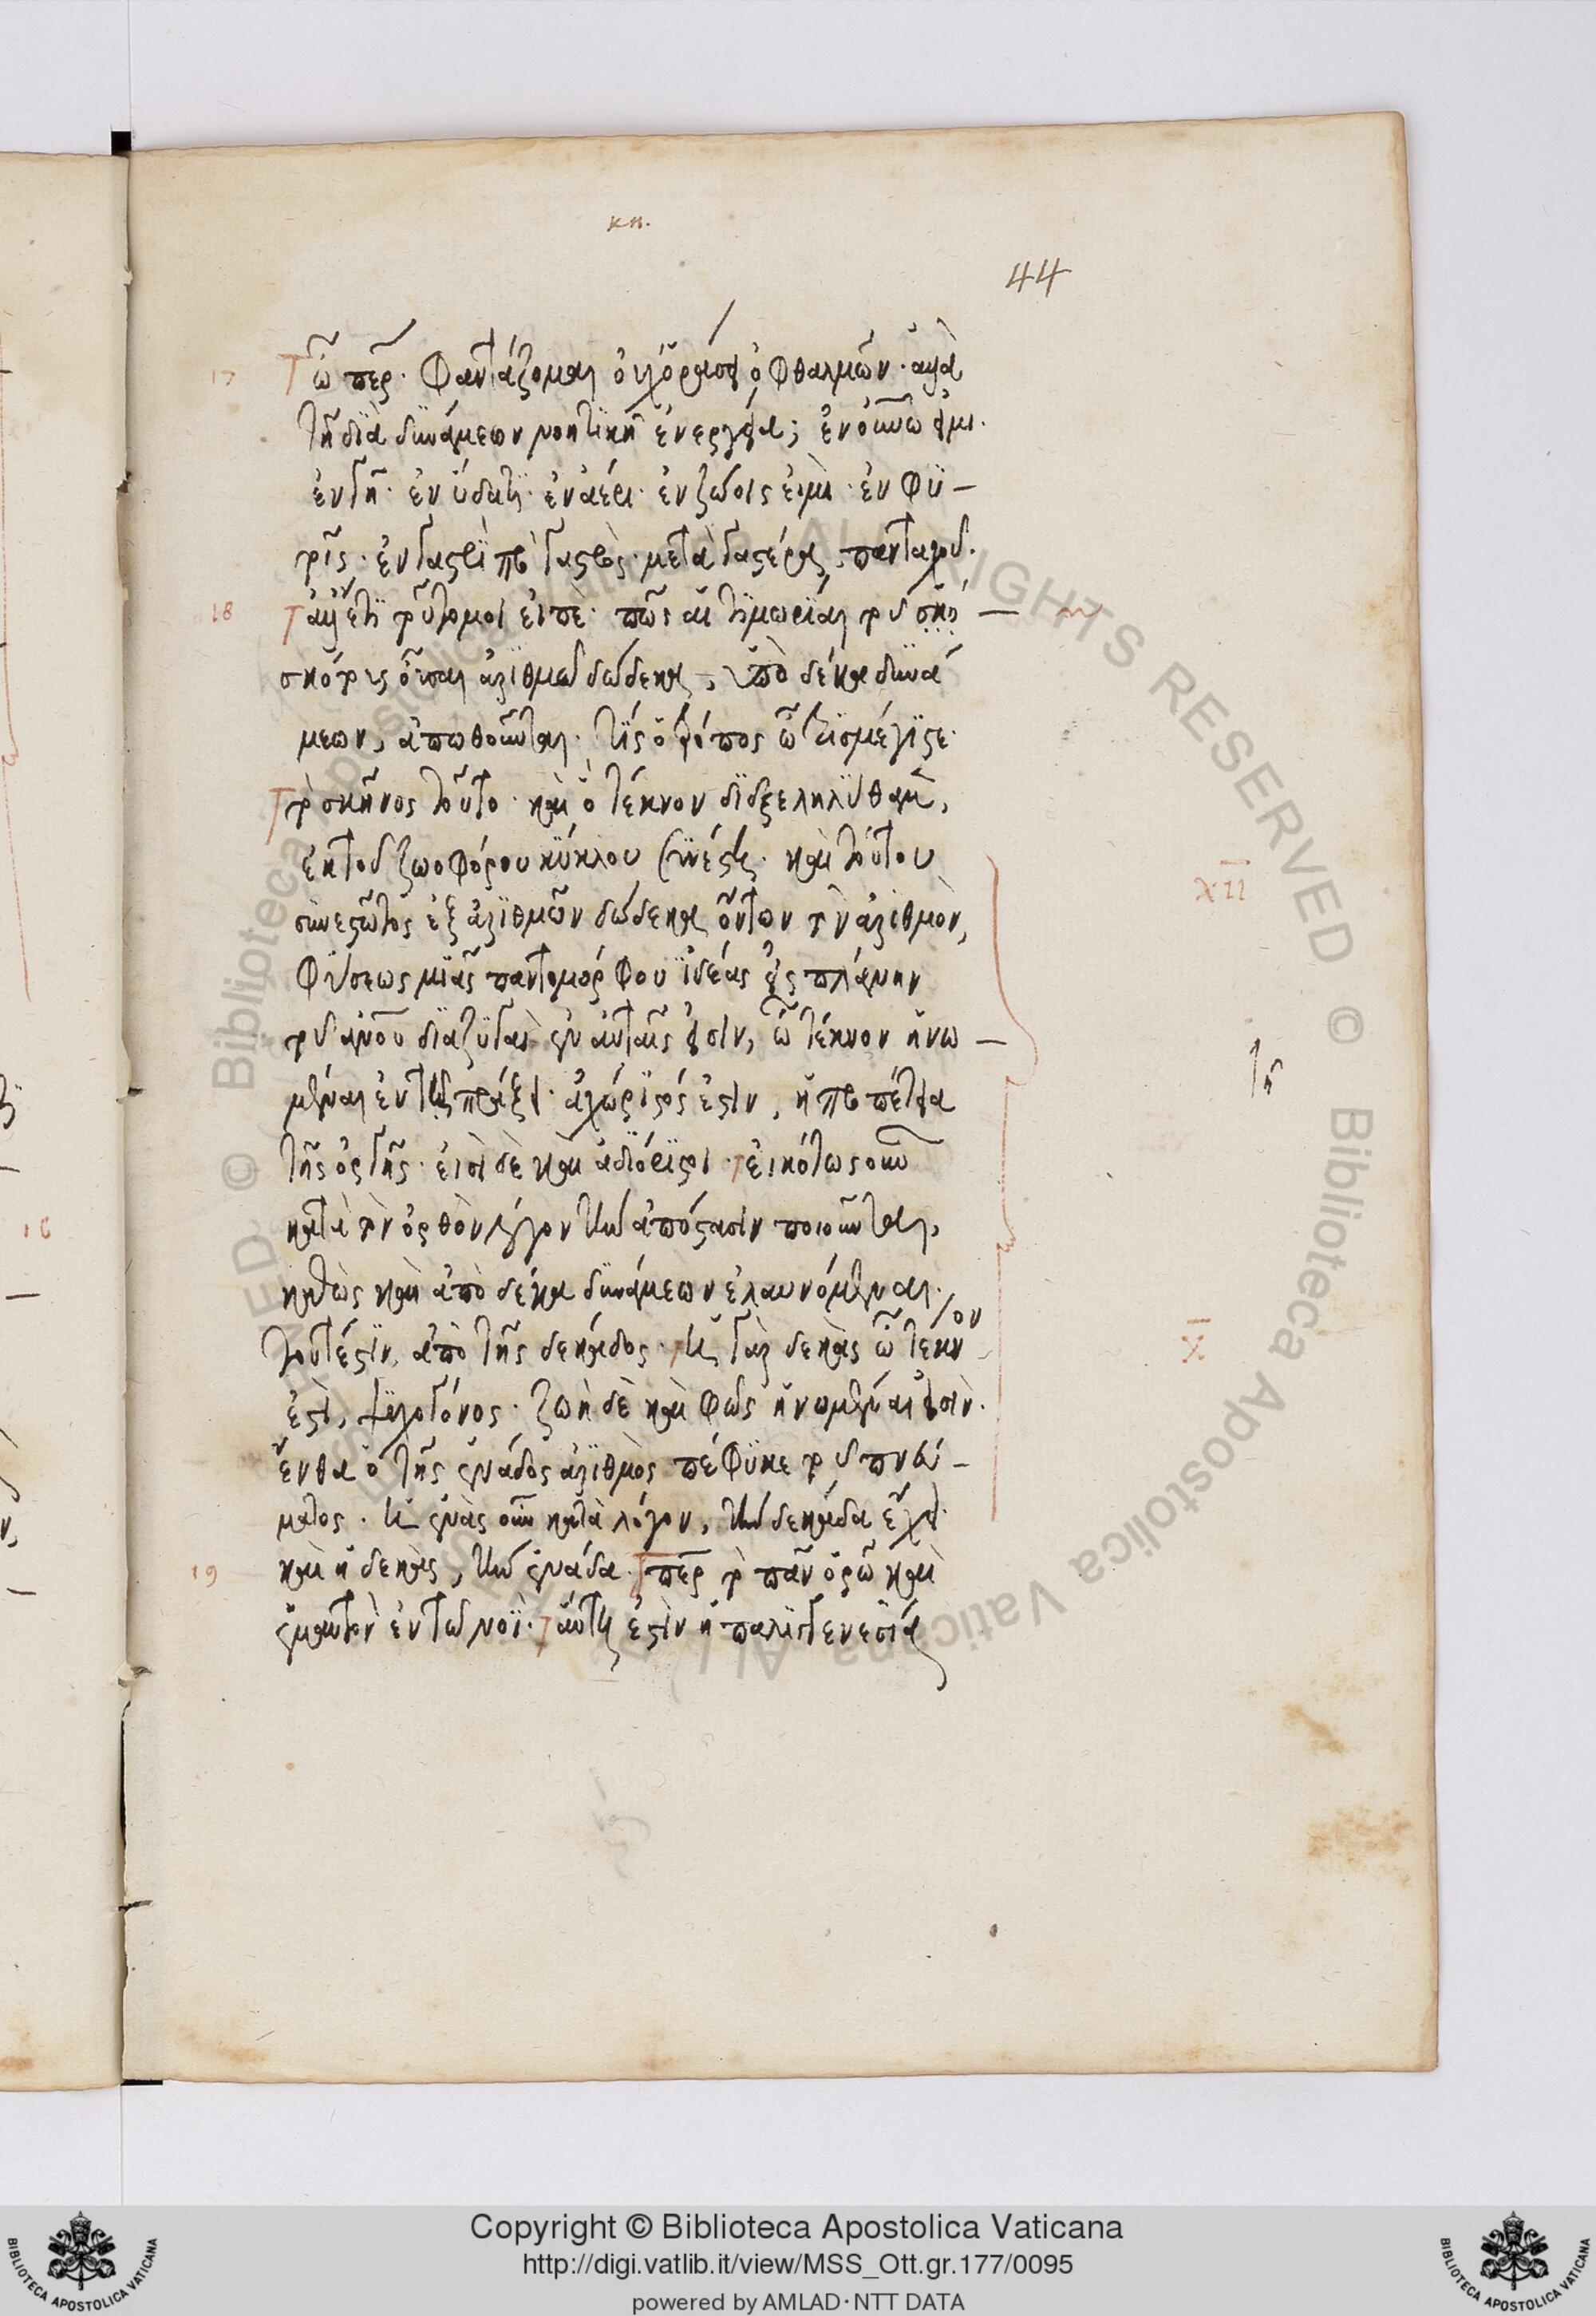 κη.
44
17 ὦ περ. φαντάζομαι οὐχ ὁράσει ὀφθαλμῶν· ἀλλὰ
τῆ διὰ δυνάμεων νοητικῆ ἐνεργεία; ἐν οὐνῶ εἰμι·
ἐν γῆ· ἐν ὕδατι· ἐν ἀέρι· ἐν ζώοις εἰμὶ· ἐν φυ-
τοῖς· ἐν γαστρὶ πρὸ γαστρὸς· μετὰ γαστέρα, πανταχοῦ.
18 ἀλλ' ἔτι τοῦτό μοι εἰπὲ· πῶς αἱ τιμωρίαι τοῦ σκό —
σκότους οὖσαι ἀριθμῶ δώδεκα, ὑπὸ δέκα δυνά
μεων, ἀπωθοῦνται· τίς ὁ τρόπος ὦ τρισμέγιστε·
τὸ σκῆνος τοῦτο· καὶ ὃ τέκνον διεξεληλύθαμεν,
ἐκ τοῦ ζωοφόρου κύκλου συνέστη· καὶ τούτου
συνεστῶτος ἐξ ἀριθμῶν δώδεκα ὄντων τὸν ἀριθμὸν,
φύσεως μιᾶς παντομόρφου ἰδέας εἰς πλάνην
τοῦ ἀνου διαζυγαὶ ἐν αὐταῖς εἰσιν, ὦ τέκνον ἡνω —
μέναι ἐν τῆ πράξει· ἀχώριστός ἐστιν, ἡ προπέτεια
τῆς ὀργῆς· εἰσὶ δὲ καὶ ἀδιόριστοι· εἰκότως οὖν
κατὰ τὸν ὀρθὸν λόγον τὴν ἀπόστασιν ποιοῦνται,
καθὼς καὶ ἀπὸ δέκα δυνάμεων ἐλαυνόμεναι·
τουτέστιν, ἀπὸ τῆς δεκάδος· ἡ γὰρ δεκὰς ὦ τέκνον
ἐστὶ, ψυχογόνος· ζωὴ δὲ καὶ φῶς ἡνωμέναι εἰσὶν·
ἔνθα ὁ τῆς ἑνάδος ἀριθμὸς πέφυκε τοῦ πνεύ —
ματος· ἡ ἑνὰς οὖν κατὰ λόγον, τὴν δεκάδα ἔχει·
19 καὶ ἡ δεκὰς, τὴν ἑνάδα. περ τὸ πᾶν ὁρῶ καὶ
ἐμαυτὸν ἐν τῶ νοΐ· αὕτη ἐστὶν ἡ παλιγγενεσία
XII
X
16
Copyright © Biblioteca Apostolica Vaticana
http://digi.vatlib.it/view/MSS_Ott.gr.177/0095
powered by AMLAD·NTT DATA